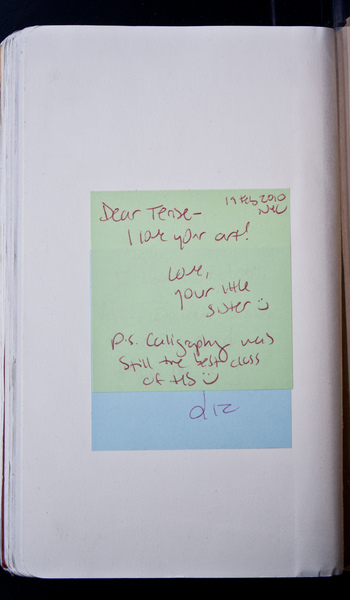 19 Feb 2010
NYC
Dear Tense-
I love your art!
Love,
your little
sister
P.S. Caligraphy was
still the best class
of HS
diz